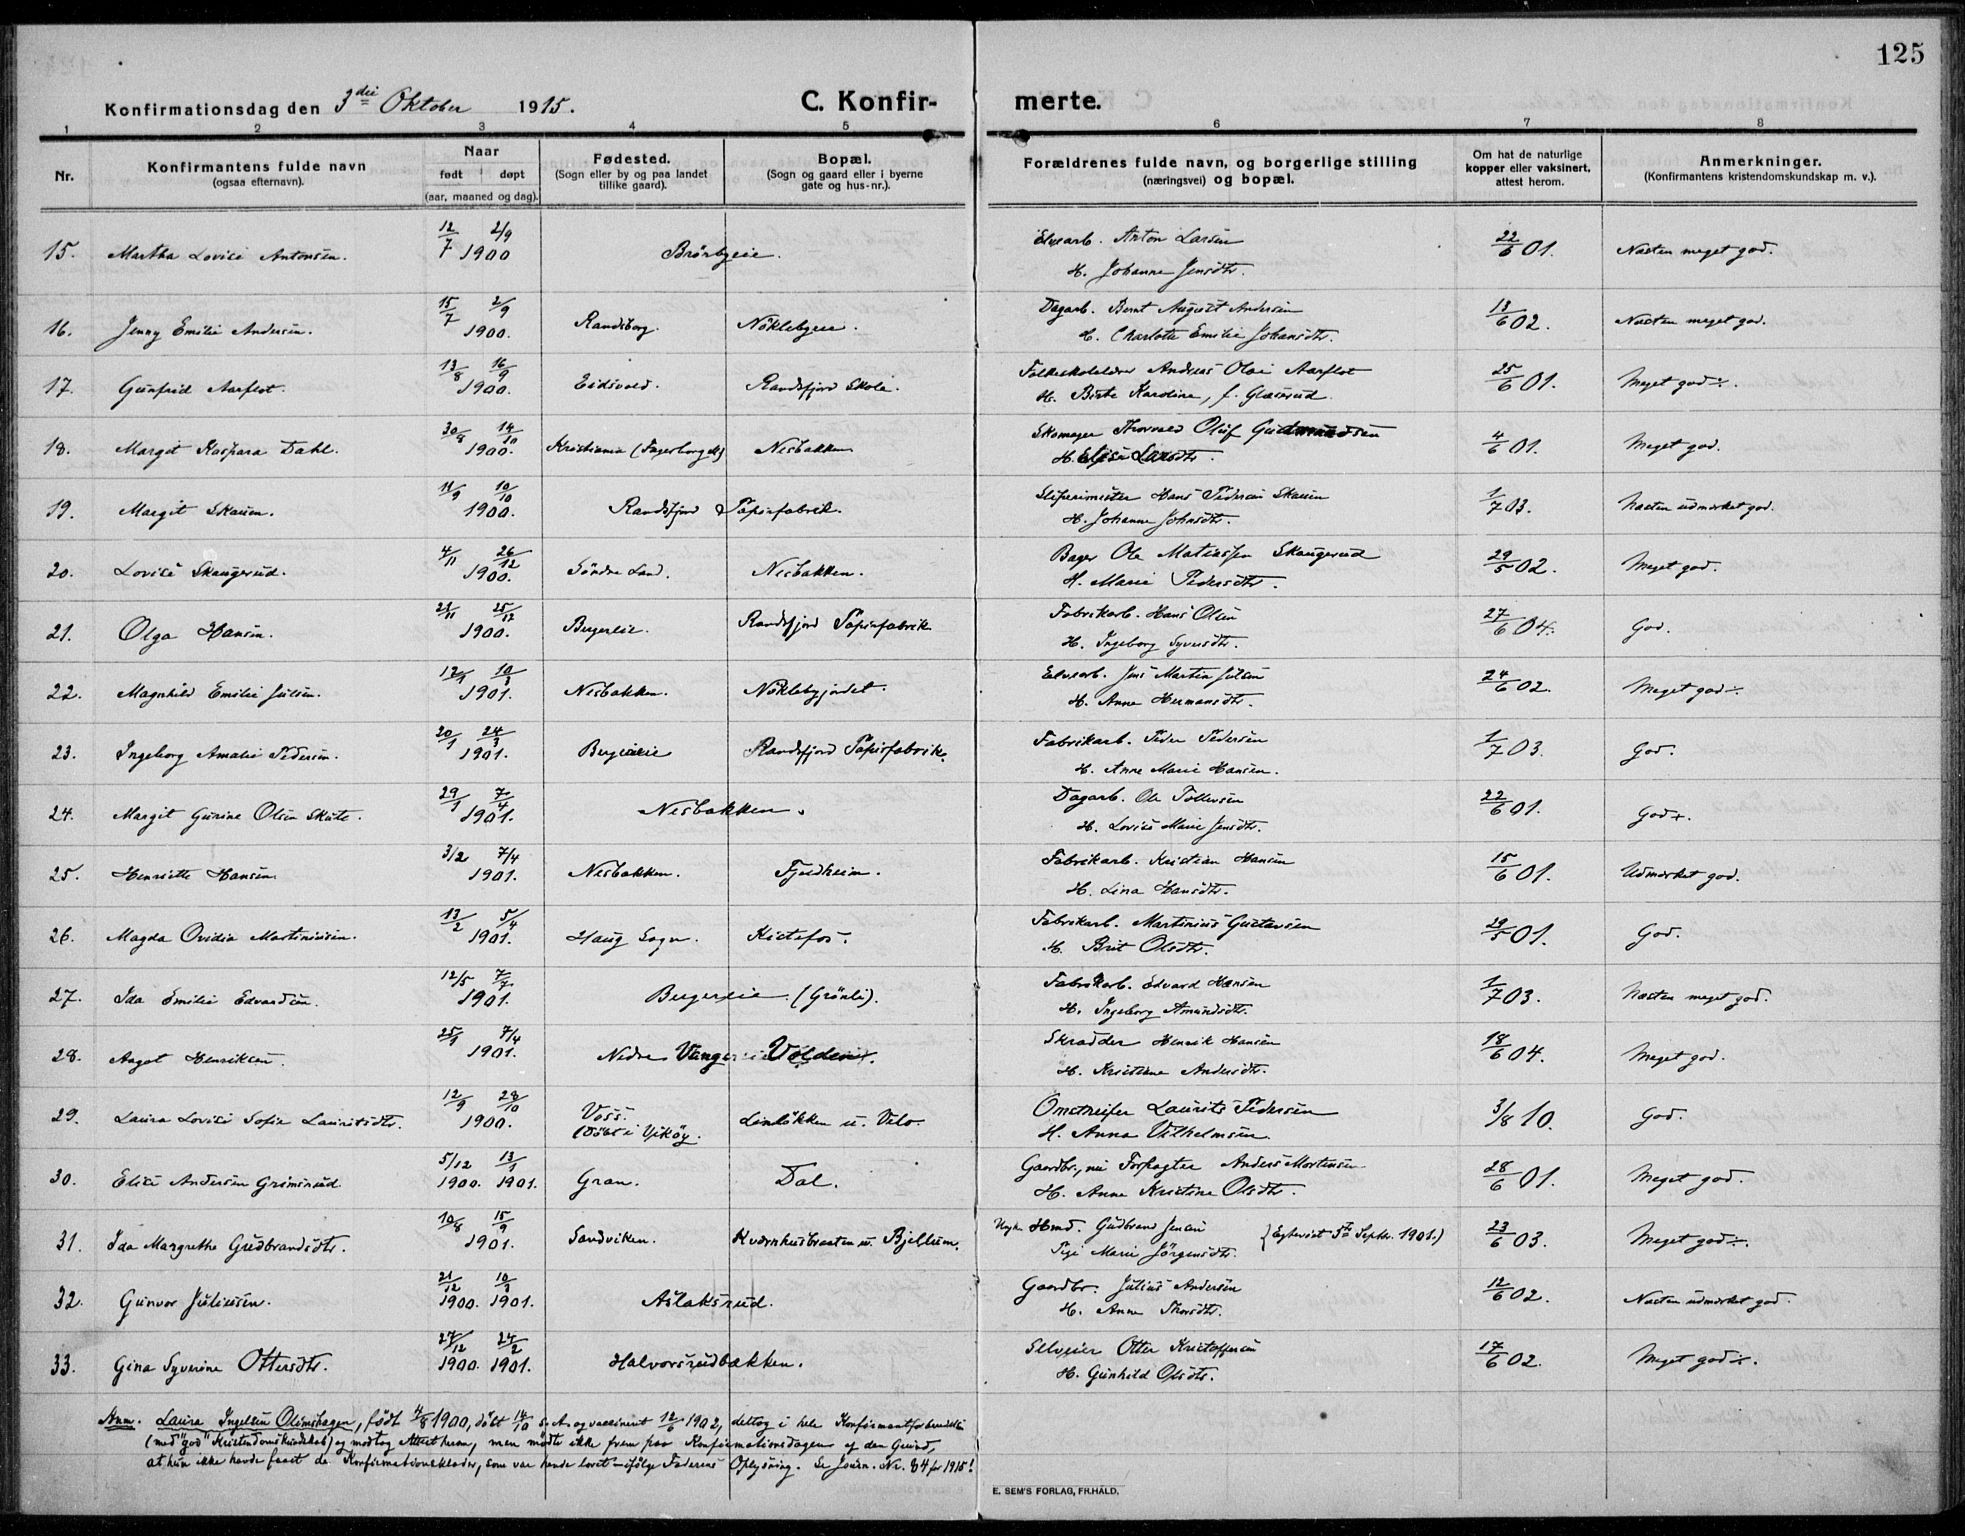 125
Konfirmationsdag den 3die Oktober 1915. C. Konfir- merte.
1 2 3 4 5 6 7 8
Nr. Konfirmantens fulde navn (ogsaa efternavn). Naar født døpt (aar, maaned og dag). Fødested. (Sogn eller by og paa landet tillike gaard). Bopæl. (Sogn og gaard eller i byerne gate og hus-nr.). Forældrenes fulde navn, og borgerlige stilling (næringsvei) og bopæl. Om hat de naturlige kopper eller vaksinert, attest herom. Anmerkninger. (Konfirmantens kristendomskundskap m. v.).
15. Martha Lovise Antonsen. 12/7 2/9 1900 Brörbyeie. Elvearb. Anton Larsen H. Johanne Jensdtr. 22/6 01. Næsten meget god.
16. Jenny Emilie Andersen. 15/7 2/9 1900. Randsborg. Nöklebyeie. Dagarb. Bernt August Andersen H. Charlotte Emilie Johansdtr. 13/6 02. Næsten meget god.
17. Gunfrid Aarflot. 13/8 16/9 1900. Eidsvold. Randsfjord Skole. Folkeskolelærer Andreas Olai Aarflot H. Birte Karoline, f. Glæserud. 25/6 01. Meget god ÷.
18. Margit Kaspara Dahl. 30/8 14/10 1900. Kristiania (Fagerborg m) Nesbakken Skomager Thorvald Oluf Gudmundsen H. Elise Larsdtr. 4/6 01. Meget god.
19. Margit Skauen. 11/9 10/10 1900. Randsfjord Papirfabrik. Sliperimester Hans Pedersen Skauen H. Johanne Johnsdtr. 1/7 03. Næsten udmærket god.
20. Lovise Skaugerud. 4/11 26/12 1900. Söndre Land. Nesbakken. Bager Ole Matiassen Skaugerud H. Marie Pedersdtr. 29/5 02. Meget god.
21. Olga Hansen. 21/11 25/12 1900. Bergereie. Randsfjord Papirfabrik Fabrikarb. Hans Olsen H. Ingeborg Syversdtr. 27/6 04. God.
22. Magnhild Emilie Julsen. 12/1 10/3 1901. Nesbakken. Nöklebyjordet. Elvearb. Jens Martin Julsen H. Anne Hermansdtr. 24/6 02. Meget god ÷.
23. Ingeborg Amalie Pedersen. 20/1 24/3 1901. Bergereie Randsfjord Papirfabrik. Fabrikarb. Peder Pedersen H. Anne Marie Hansen. 1/7 03. God.
24. Margit Gurine Olsen Skute. 29/1 7/4 1901. Nesbakken. Dagarb. Ole Tollevsen H. Lovise Marie Jensdtr. 22/6 01. God +.
25. Henriette Hansen. 3/2 7/4 1901. Nesbakken. Fjeldheim. Fabrikarb. Kristian Hansen H. Lina Hansdtr. 15/6 01. Udmærket god.
26. Magda Ovidia Martiniusen. 13/2 5/4 1901. Haug Sogn. Kistefos. Fabrikarb. Martinius Gustavsen H. Brit Olsdtr. 29/5 01. God.
27. Ida Emilie Edvardsen. 12/5 7/7 1901. Bergereie (Grönli). Fabrikarb. Edvard Hansen H. Ingeborg Amundsdtr. 1/7 03. Næsten meget god.
28. Aagot Henriksen. 25/1 7/4 1901. Nedre Volden. Skrædder Henrik Hansen H. Kristiane Andersdtr. 18/6 04. Meget god.
29. Laura Lovise Sofie Lauritsdtr. 12/9 28/10 1900. Voss. (Döbt i Vikör). Linlökken u. Velo. Omstreifer Laurits Pedersen H. Anna Vilhelmsen. 3/8 10. God.
30. Elise Andersen Grimsrud 5/12 1900. 13/1 1901. Gran. Dal. Gaardbr., nu Forpagter Anders Mortensen H. Anne Kristine Olsdtr. 28/6 01. Meget god.
31. Ida Margrethe Gudbrandsdtr. 10/8 15/9 1901. Sandviken. Kværnhusbraaten u. Bjellum. Ugk. Hmd. Gudbrand Jensen Pige Marie Jörgensdtr. (Egteviet 5te Septbr. 1901.) 23/6 03. Meget god ÷.
32. Gunvor Juliussen. 21/12 1900. 10/3 1901. Aslaksrud. Gaardbr. Julius Andersen H. Anne Thorsdtr. 12/6 02. Næsten udmærket god.
33. Gina Syverine Ottersdtr. 27/12 1900. 24/2 1901. Halvorsrudbakken. Selveier Otter Kristoffersen H. Gunhild Olsdtr. 17/6 02. Meget god ÷.
Anm. Laura Ingelsen Olimshagen, födt 4/8 1900, döbt 14/10 s. A. og vaccineret 12/6 1902, deltog i hele Konfirmantforberedelsen
(med "god" Kristendomskundskab) og modtog Attest herom, men mødte ikke frem paa Konfirmationsdagen af den Grund,
at hun ikke havde faaet de Konfirmationsklæder, som var hende lovet – ifølge Faderens Oplysning. Se Journ. Nr. 84 for 1915!
E. SEM'S FORLAG, FR.HALD.